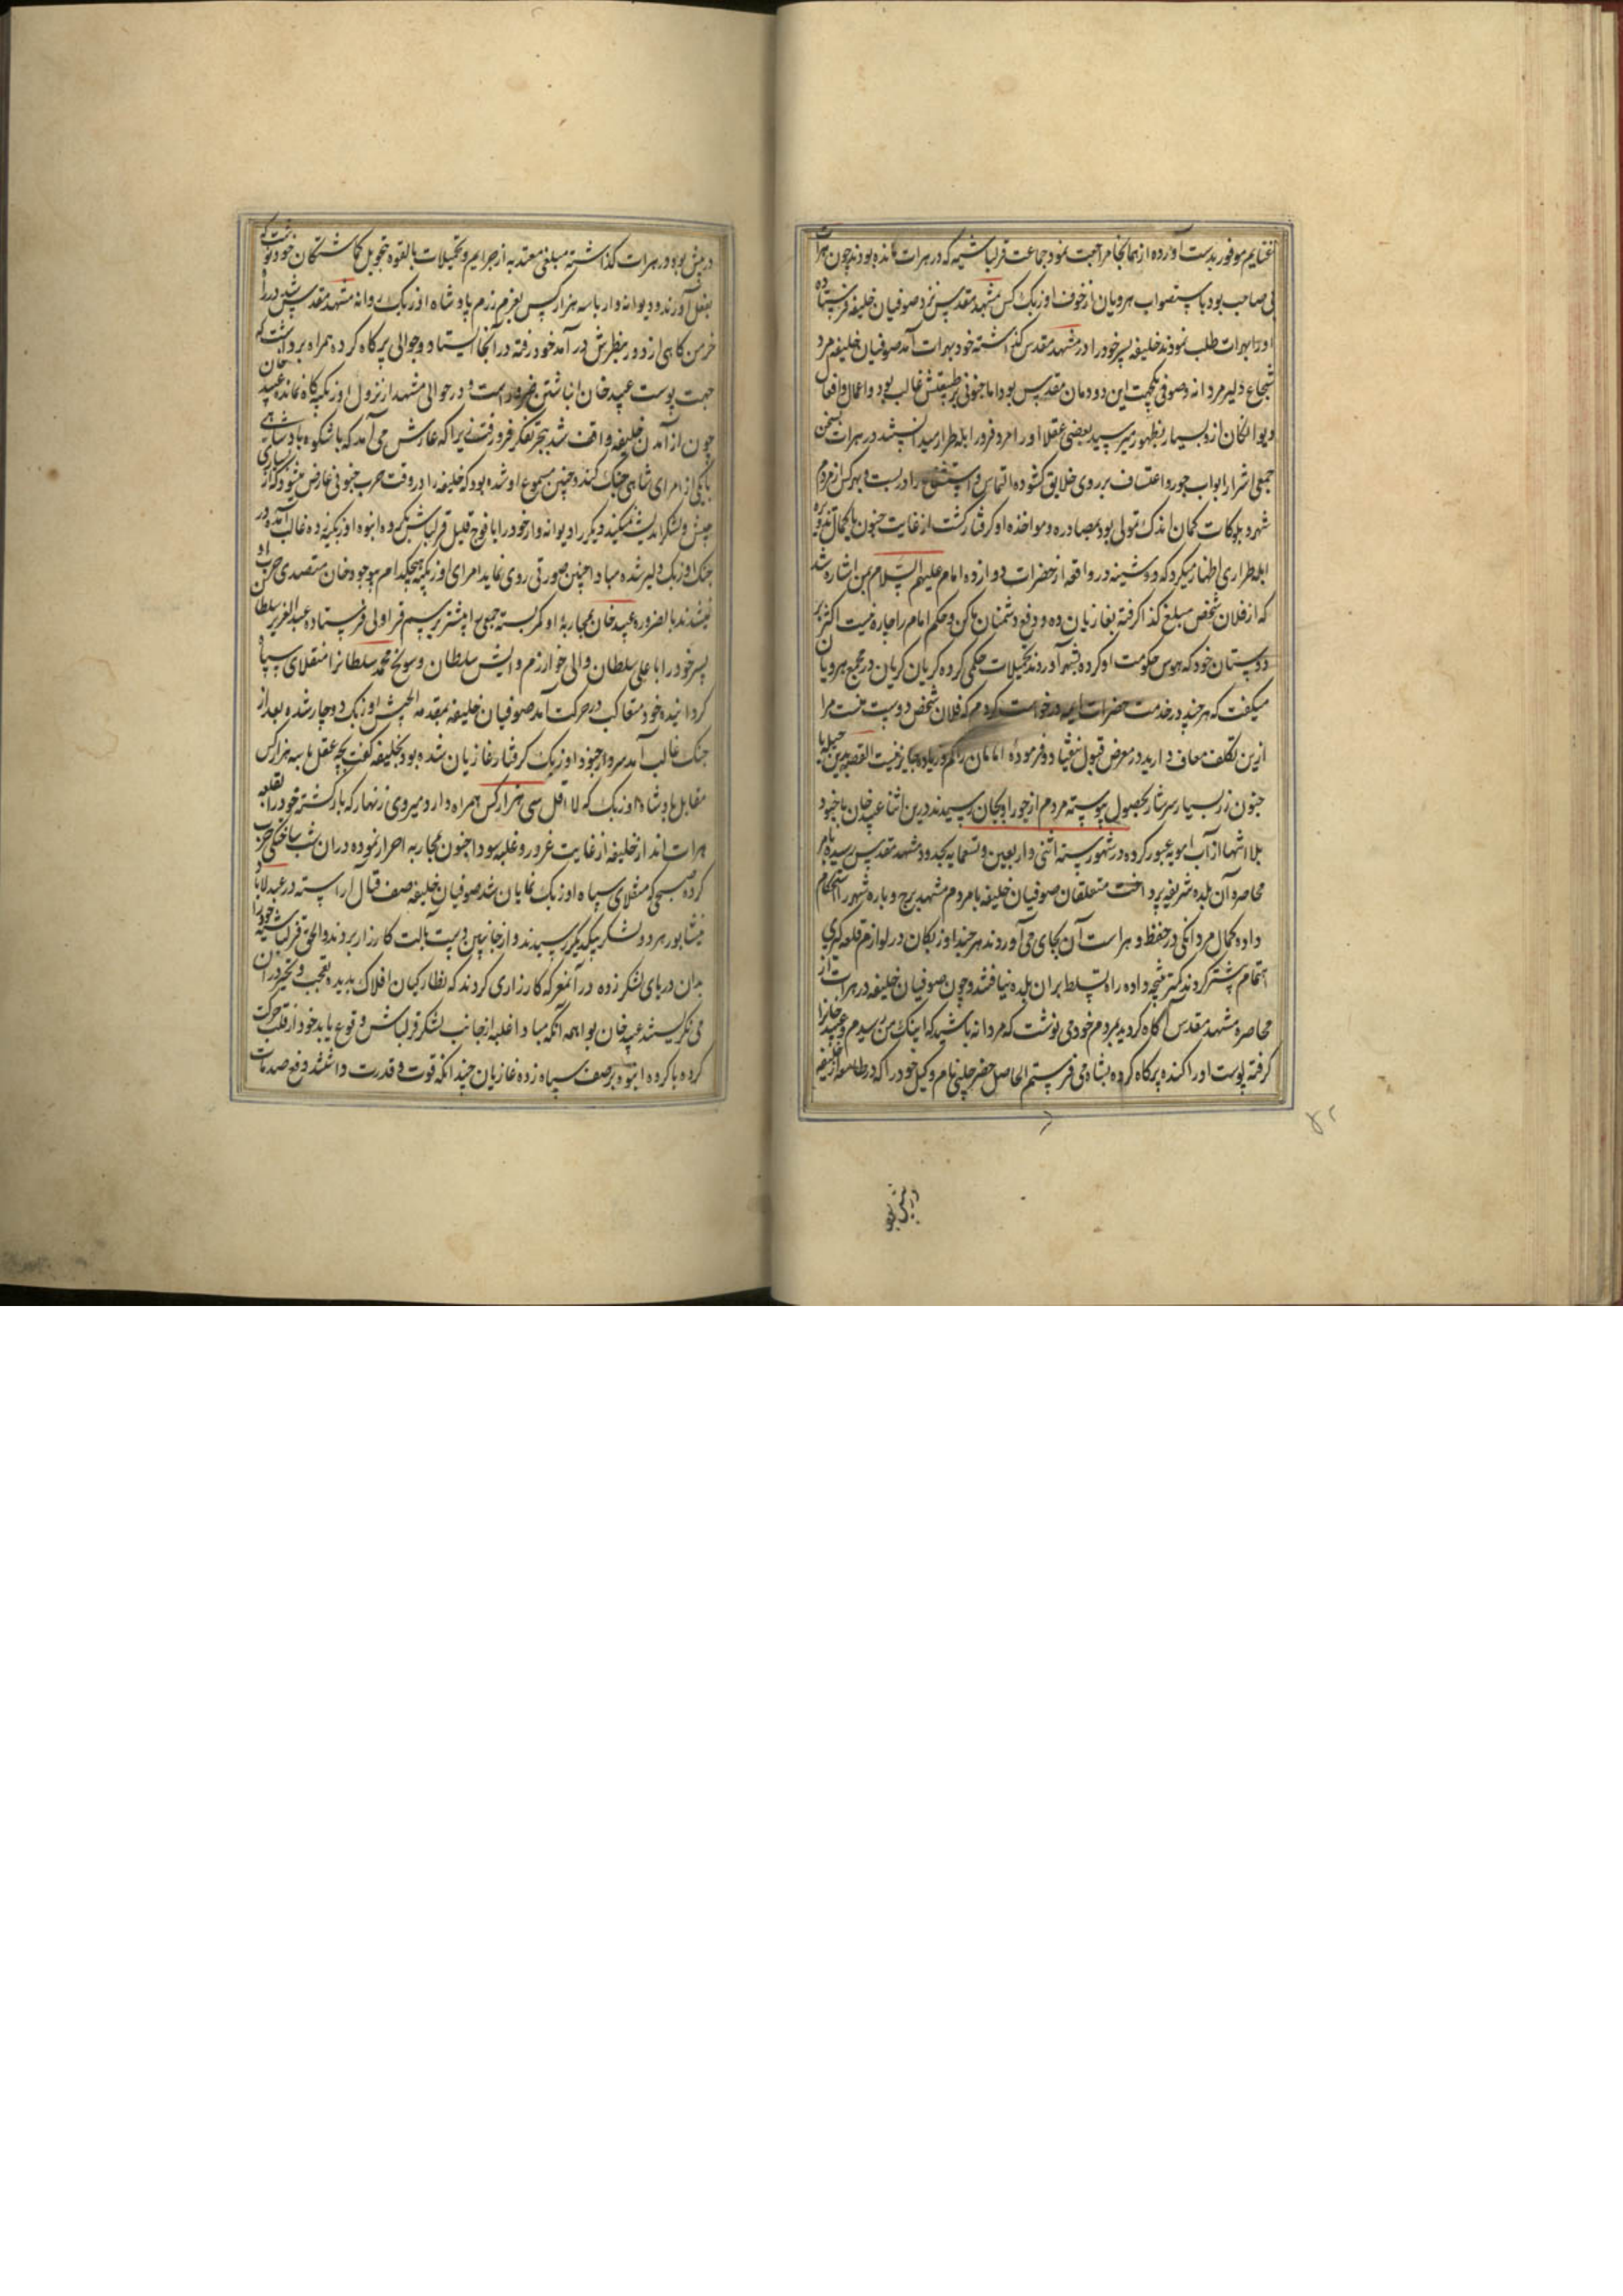 غنایم موفور بدست آورده از همانجا مراجعت نمود جماعت قزلباشیه که در هرات مانده بودند چون هرات
بی صاحب بود باستصواب هرویان از خوف اوزبک کس بمشهد مقدس نزد صوفیان خلیفه فرستاده
اورا بهرات طلب نمودند خلیفه پسر خود را در مشهد مقدس گذاشته خود بهرات آمد صوفیان خلیفه مرد
شجاع دلیر مردانه و صوفی یکجهت این دودمان مقدس بود اما جنونی بر طبیعتش غالب بود و اعمال و افعال
دیوانگان ازو بسیار بظهور میرسید بعضی عقلا اورا مرد فرورا ابله طرار میدانستند در هرات بسخن
جمعی اشرار ابواب جور و اعتساف بر روی خلایق گشوده التماس و را در بست و بهرکس از مردم
شهر و بلوکات گمان اندک تمولی بود بمصادره و مواخذه او گرفتار گشت از غایت جنون یا بکمال تزویر
ابله طراری اظهار میکرد که دوشینه در واقعه از حضرات دوازده امام علیهم السلام بمن اشاره شد
که از فلان شخص مبلغ کذا گرفته بغازیان ده و دفع دشمنان ما کن و حکم امام را چاره نیست اکثر بر
دوستان خود که هوس حکومت او کرده بشهر آوردند تحمیلات حکمی کرده گریان گریان در مجمع هرویان
میگفت که هر چند در خدمت حضرات ایمه درخواست کردم که فلان شخص دوست منست مرا
ازین تکلف معاف دارید در معرض قبول نیفتاد و فرموده امامان را کم و زیاده جایز نیست القصه بدین حیله یا
جنون زر بسیار سرشار بحصول پیوسته مردم از جور او بجان رسیدند درین اثنا عبید خان با جنود
بلا انتها از آب امویه عبور کرده در شهور سنه اثنی و اربعین و تسعمایه بحدود مشهد مقدس رسیده بامر
محاصره آن بلده شریفه پرداخت متعلقان صوفیان خلیفه با مردم مشهد برج و باره شهر را استحکام
داده کمال مردانگی در حفظ و حراست آن بجای می آوردند هر چند اوزبکان در لوازم قلعه گیری
اهتمام بیشتر کردند کمتر نتیجه داده راه تسلط بران بلده نیافتند و چون صوفیان خلیفه در هرات از
محاصره مشهد مقدس آگاه گردید بمردم خود می نوشت که مردانه باشید که اینک من رسیدم و عبید خانرا
گرفته پوست اورا کنده پرکاه کرده بشاه می فرستم الحاصل خضر چلبی نام وکیل خود را که در طامعه از خلیفه
در پیش بو
در پیش بود در هرات گذاشته مبلغی معتد به از جرایم و تحمیلات بالقوه بتحویل گماشتگان خود نوشت که
بفعل آورند و دیوانه وار با سه هزار کس بعزم رزم پادشاه اوزبک روانه مشهد مقدس شد در راه
خرمن کاهی از دور بنظرش در آمد خود رفته در آنجا ایستاد و جوالی پر کاه کرده همراه برداشت که
جهت پوست عبید خان انباشتن ضرور است و در حوالی مشهد از نزول اوزبکیه کاه نمانده عبید خان
چون از آمدن خلیفه واقف شد ببحر تفکر فرو رفت زیرا که عارش می آمد که با شکوه پادشاهی
با یکی از امرای شاهی جنگ کند و چنین مسموع او شده بود که خلیفه را در وقت حرب جنونی عارض میشود که از بسیاری
جیش و لشکر اندیشه نمیکند و یکدیگر را دیوانه وار خود را با فوج قلیل قزلباش بر گروه انبوه اوزبکیه زده غالب آمده در
جنگ اوزبک دلیر شده مبادا چنین صورتی روی نماید امرای اوزبکیه هیچکدام با وجود خان متصدی حرب او
نمیشدند بالضروره عبید خان بمحاربه او کمر بسته جمعی را پیشتر برسم قراولی فرستاده عبدالعزیز سلطان
پسر خود را با علی سلطان والی خوارزم و ایش سلطان و سونج محمد سلطانرا منقلای سپاه
گردانیده خود متعاقب در حرکت آمد صوفیان خلیفه بمقدمه الجیش اوزبک دوچار شده بعد از
جنگ غالب آمد سرداری از جنود اوزبک گرفتار غازیان شده بود بخلیفه گفت بچه عقل با سه هزار کس
مقابل پادشاه اوزبک که لا اقل سی هزار کس همراه دارد میروی زنهار که بازگشته خود را بقلعه
هرات انداز خلیفه از غایت غرور و غلبه سودا جنون بمحاربه اصرار نموده در ان شب ساختگی حرب
کرده صبحی که منقلای سپاه اوزبک نمایان شد صوفیان خلیفه صف قتال آراسته در عبدلاباد
نیشابور هر دو لشکر بیکدیگر رسیدند و از جانبین دست بآلت کارزار بردند والحق قزلباشیه خود را
بدان دریای لشکر زده در آنمعرکه کارزاری کردند که نظارگیان افلاک بدیده تعجب و تحیر در آن
می نگریستند عبید خان بواهمه آنکه مبادا غلبه از جانب لشکر قزلباش وقوع یابد خود از قلب حرکت
کرده با گروه انبوه بر صف سپاه زده غازیان چندانکه قوت و قدرت داشتند دفع صدمات